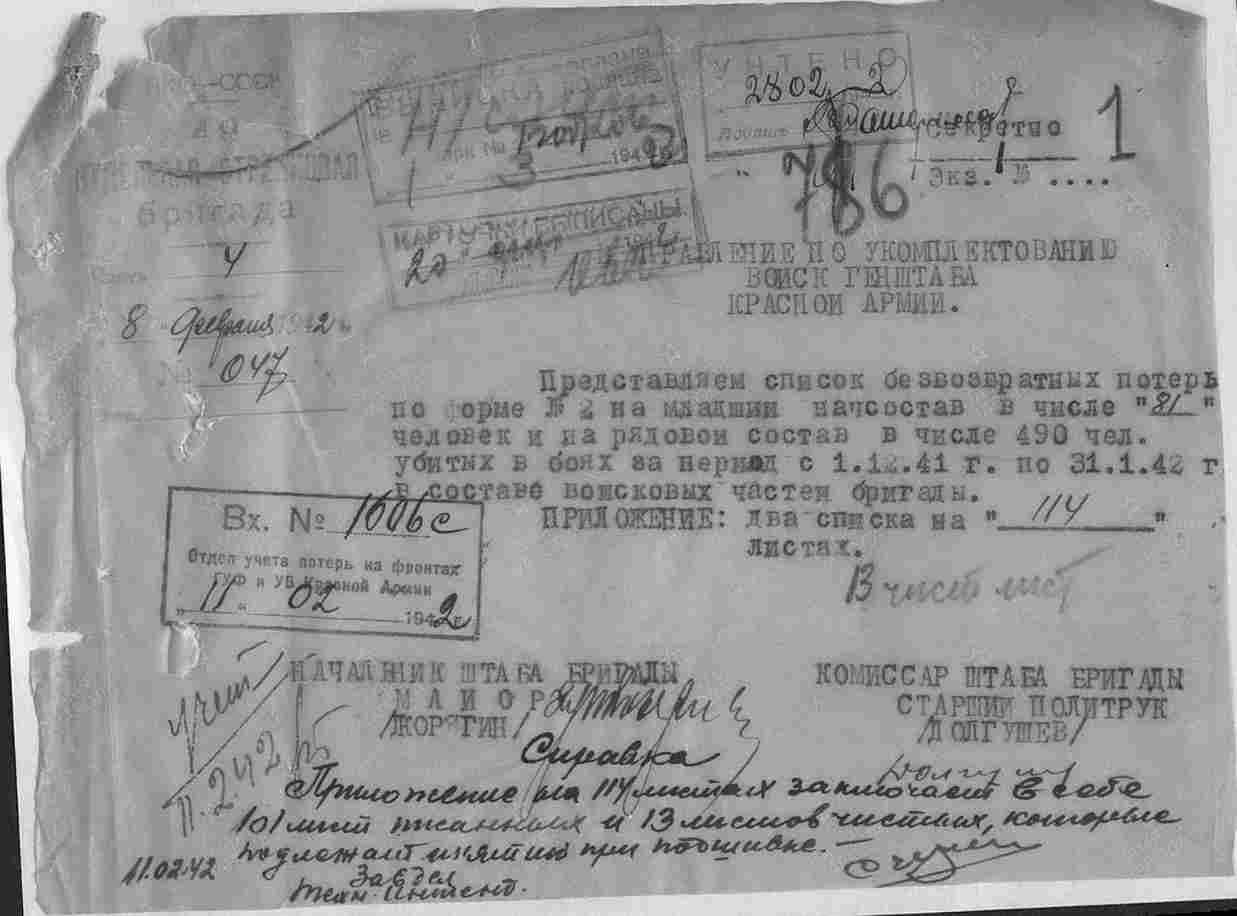 НКО-СССР
40
ОТДЕЛЬНАЯ СТРЕЛКОВАЯ
бригада
4
8 февраля 1942 г.
№ 047
1 3 1942
КАРТОЧКИ ВЫПИСАНЫ
20
УЧТЕНО
2802 2
Подпись
786
Секретно
Экз. № .... 1
1
УПРАВЛЕНИЕ ПО УКОМПЛЕКТОВАНИЮ
ВОЙСК ГЕНШТАБА
КРАСНОЙ АРМИИ.
Представляем список безвозвратных потерь
по форме № 2 на младший начсостав в числе "81"
человек и на рядовой состав в числе 490 чел.
убитых в боях за период с 1.12.41 г. по 31.1.42 г
в составе войсковых частей бригады.
ПРИЛОЖЕНИЕ: два списка на "114"
листах.
13 чист лист
Вх. № 1606с
Отдел учета потерь на фронтах
ГУФ и УВ Красной Армии
"11" 02 1942г.
учет
11.2.42
НАЧАЛЬНИК ШТАБА БРИГАДЫ
МАЙОР
/КОРЯГИН/
КОМИССАР ШТАБА БРИГАДЫ
СТАРШИЙ ПОЛИТРУК
/ДОЛГУШЕВ/
Справка
Приложение на 114 листах заключает в себе
101 лист писанных и 13 листов чистых, которые
подлежат изъятию при подшивке. —
11.02.42
Техн. Интенд.